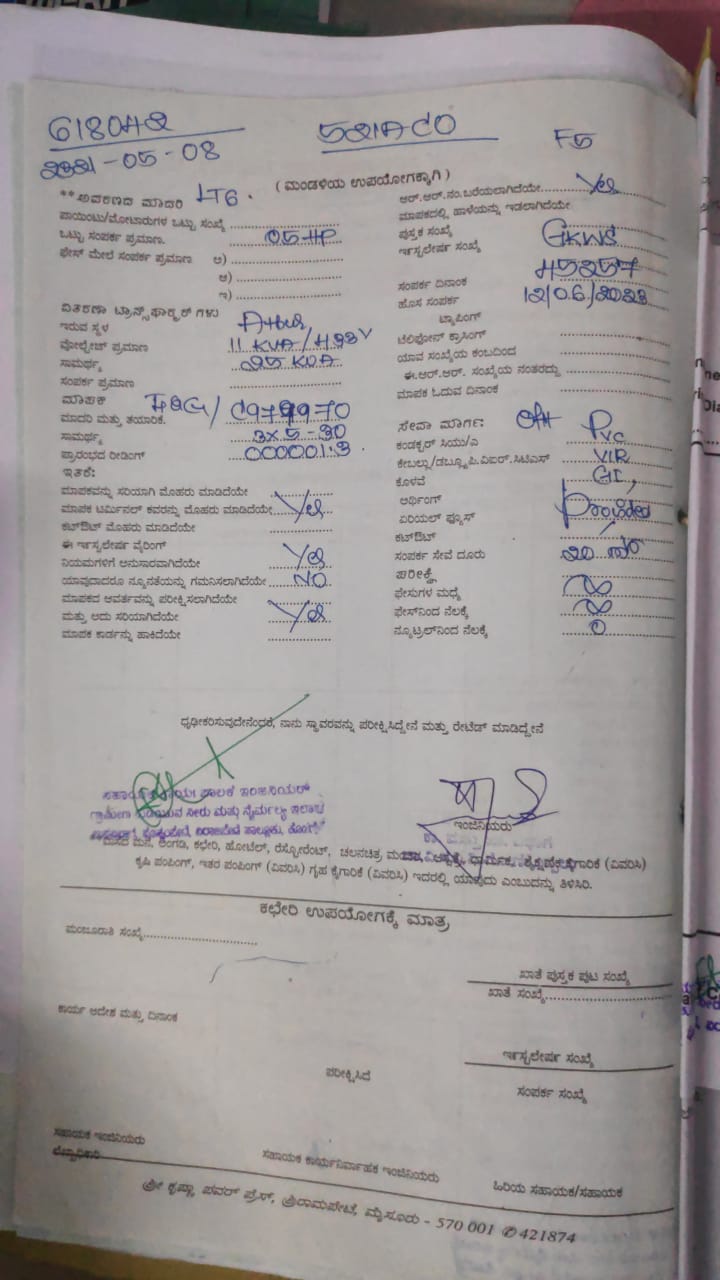 618042
521ACO
F5
-05-08
(ಮಂಡಳಿಯ ಉಪಯೋಗಕ್ಕಾಗಿ)
**ಆವರಣದ ಮಾದರಿ LT6.
ಪಾಯಿಂಟು/ಮೋಟಾರುಗಳ ಒಟ್ಟು ಸಂಖ್ಯೆ
ಒಟ್ಟು ಸಂಪರ್ಕ ಪ್ರಮಾಣ. 05-HP
ಫೇಸ್ ಮೇಲೆ ಸಂಪರ್ಕ ಪ್ರಮಾಣ ಅ)
ಆ)
ಇ)
ವಿತರಣಾ ಟ್ರಾನ್ಸ್‌ಫಾರ್ಮರ್‌ಗಳು
ಇರುವ ಸ್ಥಳ
ವೋಲ್ಟೇಜ್ ಪ್ರಮಾಣ 11 KVA/433V
ಸಾಮರ್ಥ್ಯ 25 KVA
ಸಂಪರ್ಕ ಪ್ರಮಾಣ
ಮಾಪಕ
ಮಾದರಿ ಮತ್ತು ತಯಾರಿಕೆ.
ಸಾಮರ್ಥ್ಯ 3X5-30
ಪ್ರಾರಂಭದ ರೀಡಿಂಗ್ 000001.3
ಇತರೆ:
ಮಾಪಕವನ್ನು ಸರಿಯಾಗಿ ಮೊಹರು ಮಾಡಿದೆಯೇ
ಮಾಪಕ ಟರ್ಮಿನಲ್ ಕವರನ್ನು ಮೊಹರು ಮಾಡಿದೆಯೇ Yes
ಕಟ್‌ಔಟ್ ಮೊಹರು ಮಾಡಿದೆಯೇ
ಈ ಇನ್ಸ್ಟಲೇಷನ್ ವೈರಿಂಗ್
ನಿಯಮಗಳಿಗೆ ಅನುಸಾರವಾಗಿದೆಯೇ Yes
ಯಾವುದಾದರೂ ನ್ಯೂನತೆಯನ್ನು ಗಮನಿಸಲಾಗಿದೆಯೇ NO
ಮಾಪಕದ ಆವರ್ತವನ್ನು ಪರೀಕ್ಷಿಸಲಾಗಿದೆಯೇ
ಮತ್ತು ಅದು ಸರಿಯಾಗಿದೆಯೇ Yes
ಮಾಪಕ ಕಾರ್ಡನ್ನು ಹಾಕಿದೆಯೇ
ಆರ್.ಆರ್.ನಂ.ಬರೆಯಲಾಗಿದೆಯೇ Yes
ಮಾಪಕದಲ್ಲಿ ಹಾಳೆಯನ್ನು ಇಡಲಾಗಿದೆಯೇ
ಪುಸ್ತಕ ಸಂಖ್ಯೆ GKWS
ಇನ್ಸ್ಟಲೇಷನ್ ಸಂಖ್ಯೆ 45257
ಸಂಪರ್ಕ ದಿನಾಂಕ 12/06/2023
ಹೊಸ ಸಂಪರ್ಕ
ಟ್ಯಾಪಿಂಗ್
ಟೆಲಿಫೋನ್ ಕ್ರಾಸಿಂಗ್
ಯಾವ ಸಂಖ್ಯೆಯ ಕಂಬದಿಂದ
ಈ.ಆರ್.ಆರ್. ಸಂಖ್ಯೆಯ ನಂತರದ್ದು
ಮಾಪಕ ಓದುವ ದಿನಾಂಕ
ಸೇವಾ ಮಾರ್ಗ: OH
ಕಂಡಕ್ಟರ್ ಸಿಯು/ಎ PVC
ಕೇಬಲ್ಲು/ಡಬ್ಲ್ಯೂ.ಪಿ.ವಿಐಆರ್.ಸಿಟಿಎಸ್ VIR
ಕೊಳವೆ GI,
ಅರ್ಥಿಂಗ್
ಏರಿಯಲ್ ಫ್ಯೂಸ್ provided
ಕಟ್‌ಔಟ್
ಸಂಪರ್ಕ ಸೇವೆ ದೂರು 20
ಪರೀಕ್ಷೆ
ಫೇಸುಗಳ ಮಧ್ಯೆ
ಫೇಸ್‌ನಿಂದ ನೆಲಕ್ಕೆ
ನ್ಯೂಟ್ರಲ್‌ನಿಂದ ನೆಲಕ್ಕೆ 0
ಧೃಢೀಕರಿಸುವುದೇನೆಂದರೆ, ನಾನು ಸ್ಥಾವರವನ್ನು ಪರೀಕ್ಷಿಸಿದ್ದೇನೆ ಮತ್ತು ರೇಟೆಡ್ ಮಾಡಿದ್ದೇನೆ
ಪಾಲಕ ಇಂಜಿನಿಯರ್
ಗ್ರಾಮೀಣ ಕುಡಿಯುವ ನೀರು ಮತ್ತು ನೈರ್ಮಲ್ಯ ಇಲಾಖೆ
ಇಂಜಿನಿಯರು
ಅಂಗಡಿ, ಕಛೇರಿ, ಹೋಟೆಲ್, ರೆಸ್ಟೋರೆಂಟ್, ಚಲನಚಿತ್ರ (ವಿವರಿಸಿ)
ಕೃಷಿ ಪಂಪಿಂಗ್, ಇತರ ಪಂಪಿಂಗ್ (ವಿವರಿಸಿ) ಗೃಹ ಕೈಗಾರಿಕೆ (ವಿವರಿಸಿ) ಇದರಲ್ಲಿ ಯಾವುದು ಎಂಬುದನ್ನು ತಿಳಿಸಿರಿ.
ಕಛೇರಿ ಉಪಯೋಗಕ್ಕೆ ಮಾತ್ರ
ಮಂಜೂರಾತಿ ಸಂಖ್ಯೆ
ಖಾತೆ ಪುಸ್ತಕ ಪುಟ ಸಂಖ್ಯೆ
ಖಾತೆ ಸಂಖ್ಯೆ
ಕಾರ್ಯ ಆದೇಶ ಮತ್ತು ದಿನಾಂಕ
ಇನ್ಸ್ಟಲೇಷನ್ ಸಂಖ್ಯೆ
ಪರೀಕ್ಷಿಸಿದೆ
ಸಂಪರ್ಕ ಸಂಖ್ಯೆ
ಸಹಾಯಕ ಇಂಜಿನಿಯರು
ಸಹಾಯಕ ಕಾರ್ಯನಿರ್ವಾಹಕ ಇಂಜಿನಿಯರು
ಹಿರಿಯ ಸಹಾಯಕ/ಸಹಾಯಕ
ಶ್ರೀ ಕೃಷ್ಣಾ ಪವರ್ ಪ್ರೆಸ್, ಶ್ರೀರಾಮಪೇಟೆ, ಮೈಸೂರು - 570 001 ✆ 421874